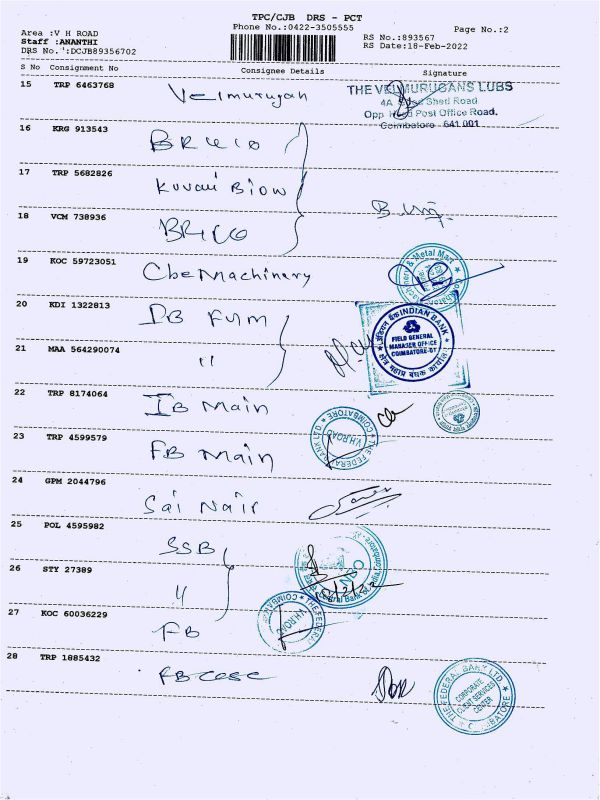 TPC/CJB DRS - PCT
Phone No.:0422-3505555
Page No.:2
Area :V H ROAD
Staff :ANANTHI
DRS No.':DCJB89356702
RS No.:893567
RS Date:18-Feb-2022
S No Consignment No Consignee Details Signature
15 TRP 6463768 Velmurugan
THE VELMURUGANS LUBS
Opp Head Post Office Road.
Coimbatore 641 001
16 KRG 913543
17 TRP 5682826
18 VCM 738936
19 KOC 59723051 Cbe Machinery
& Metal Mart
20 KDI 1322813
21 MAA 564290074 "
INDIAN BANK
FIELD GENERAL
MANAGER OFFICE
COIMBATORE-01
22 TRP 8174064 IB Main
23 TRP 4599579 FB Main
THE FEDERAL BANK LTD
V.H.ROAD
COIMBATORE
24 GPM 2044796 Sai Nair
25 POL 4595982 SSB
26 STY 27389 "
27 KOC 60036229 FB
THE FEDERAL
V.H.ROAD
28 TRP 1885432
THE FEDERAL BANK LTD.
CORPORATE
CLIENT SERVICES
CENTER
COIMBATORE